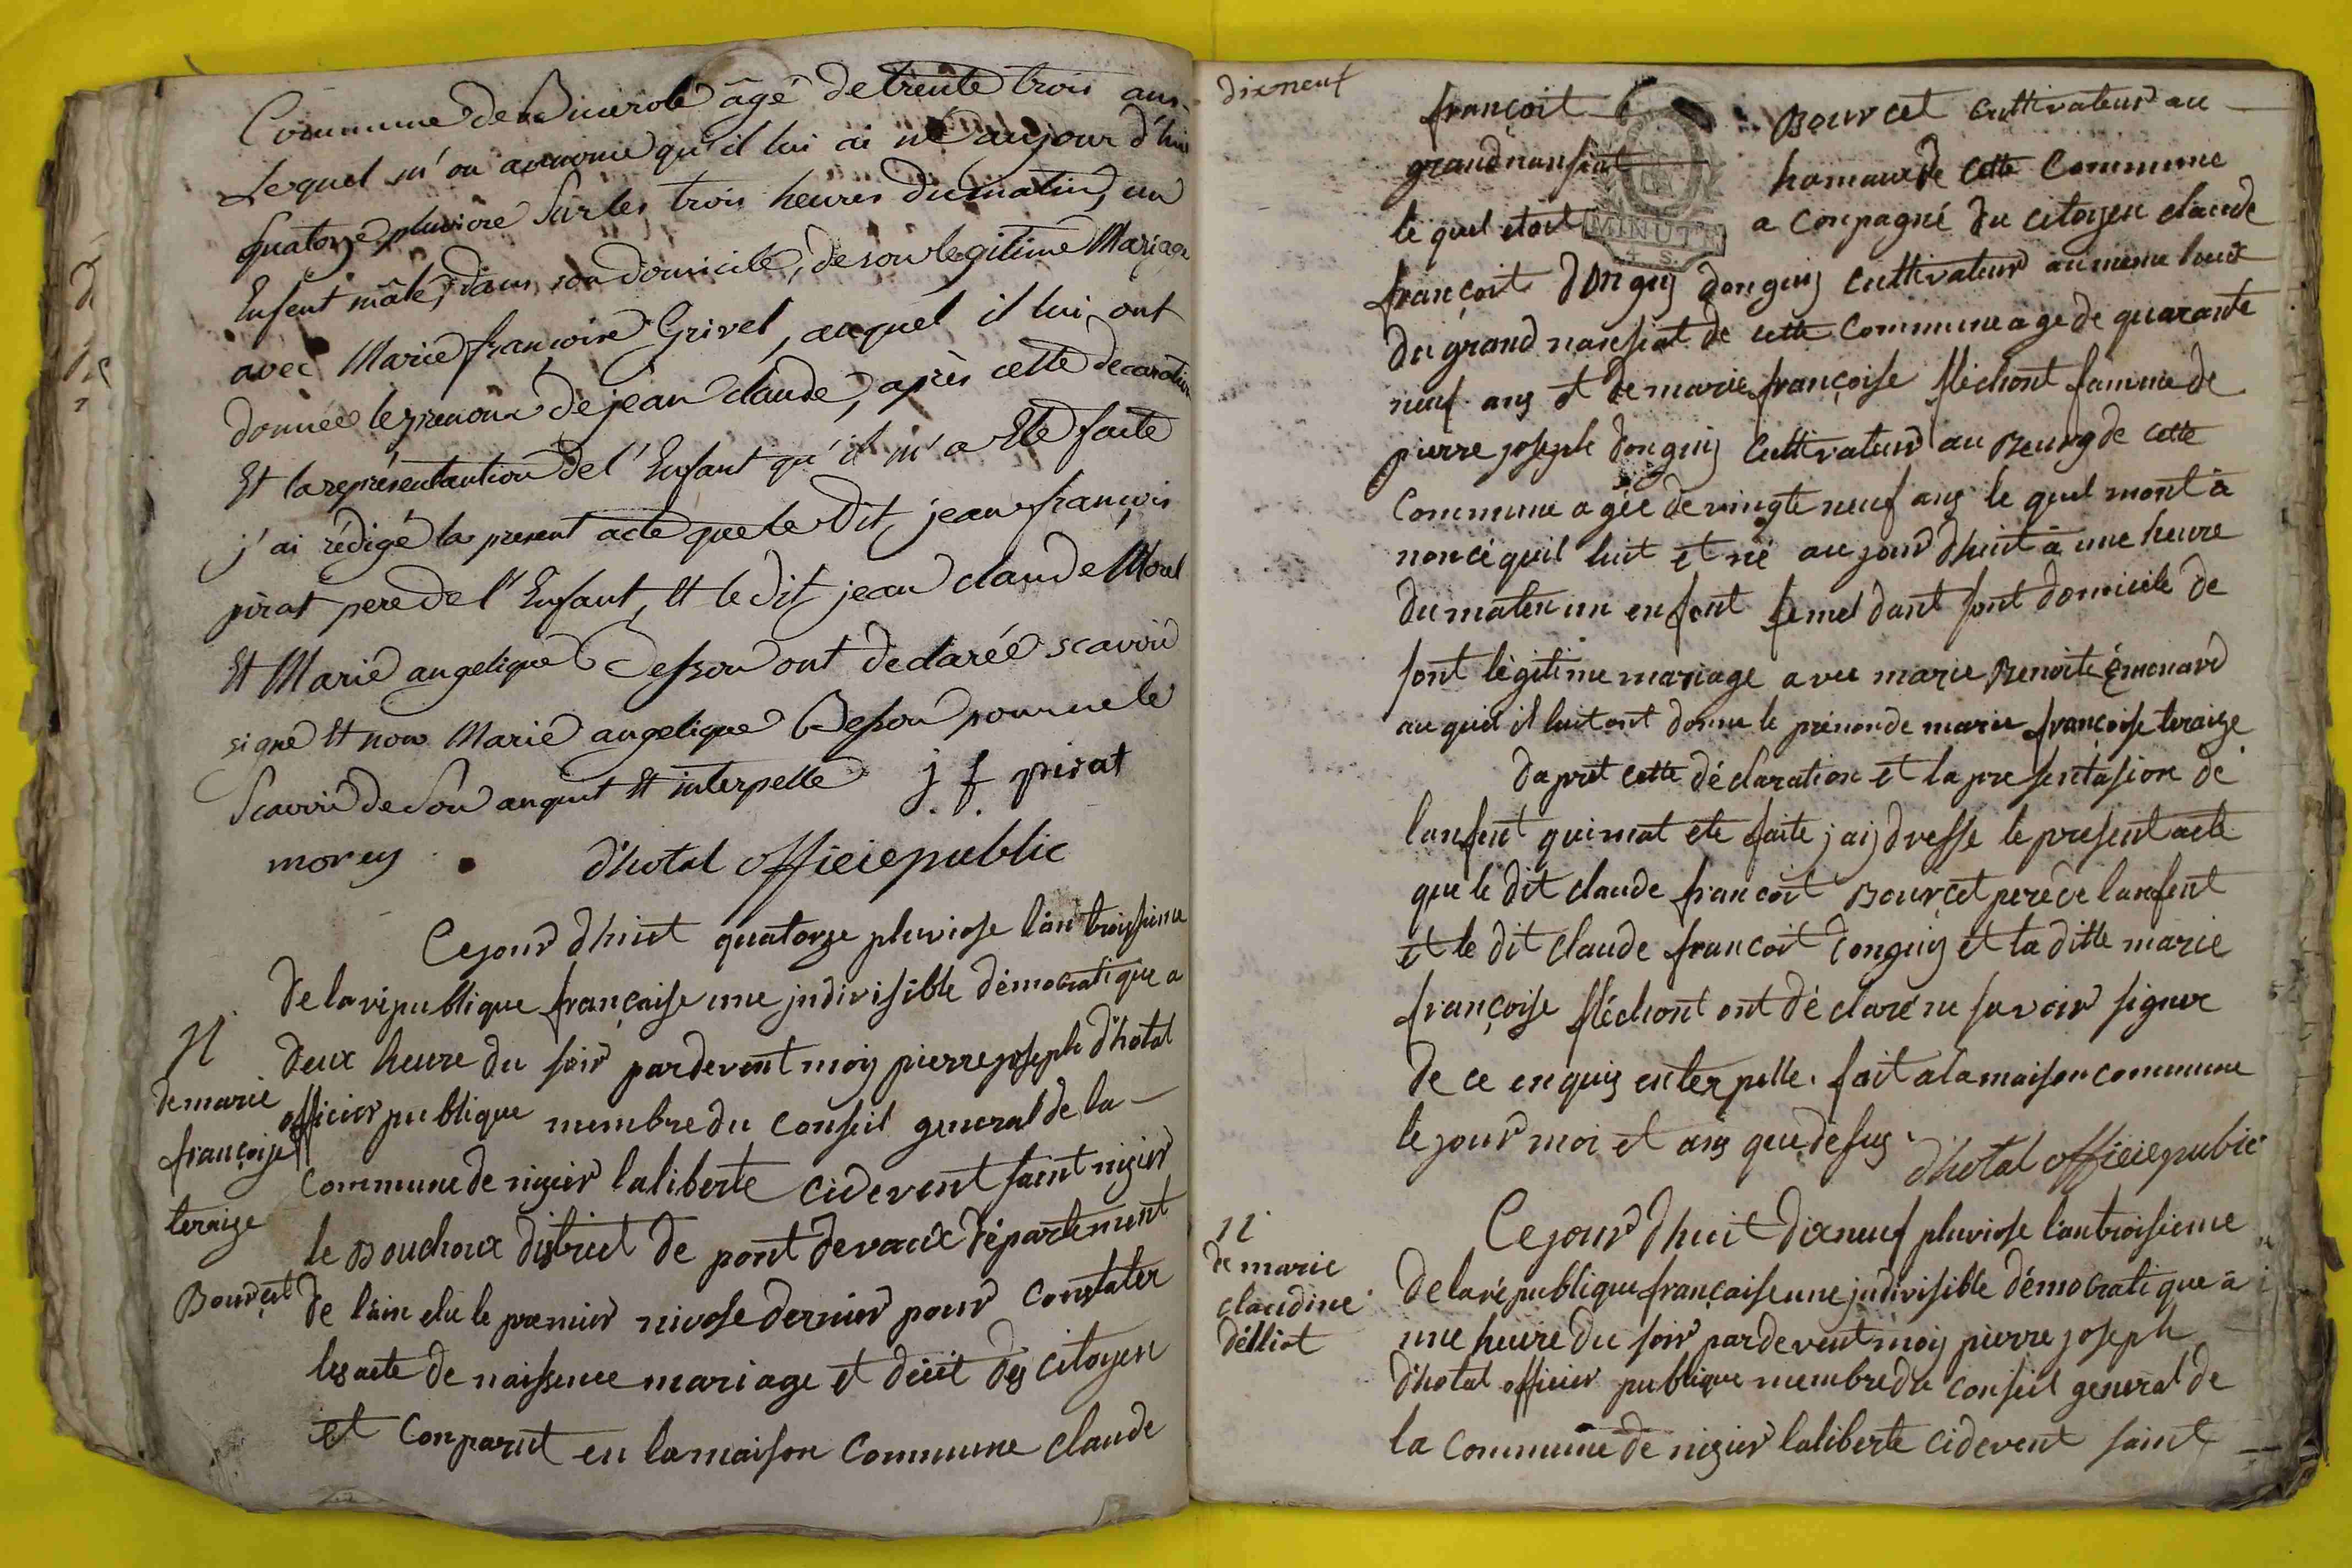 Commune de Bicirole âgé de trente trois ans
Lequel m'on annoncé qu'il lui ai né aujour d'hui
quatorze pluviore sur les trois heures du matin, un
Enfent mâle, dans son domicile, de son legitime Mariage
avec Marie françoise Grivel, auquel il lui ont
donnée le prenom de jean claude, après cette decaration
Et la représentantion de l'Enfant qu'il m'a Eté faite
j'ai rédigé la present acte que le Dit jean françois
pirat pere de l'Enfant, Et le dit jean claude Morel
Et Marie angelique Besson ont declarée scavoir
signe Et non Marie angelique Besson pour ne le
Scavoir de Son anquit Et interpelle j. f. pirat
morey d'hotal officie public
Ce jour dhuit quatorze pluviose l'an troissieme
de la republique française une jndivisible démocratique a
deux heure du soir pardevent moy pierre joseph d'hotal
officier publique membre du conseil general de la
Commune de nizier laliberte cidevent saint nizier
le Bouchoux distrect de pont devaux département
de l'ain elu le premier nivose dernier pour constater
les acte de naissence mariage et décit des citoyen
et Conparut en la maison Commune claude
N
de marie
françoise
teraize
Bourcet
dixneuf
françoit Bourcet cultivateur au
grand nansiat hamaux de cette Commune
le quel etoit a conpagné du citoyen claude
MINUTE
françoit donguy donguy cultivateur au mime lout
du grand nansiat de cette Commune age de quarante
neuf ans et de marie françoise fléchont famme de
pierre joseph donguy cultivateur au Bourg de cette
Commune agée de vingte neuf ans le quel mont à
noncé quil luit et né au jour dhuit à une heure
du maten un enfent femel dant sont domicile de
sont légitime mariage avec marie Benoite Emonard
au quel il luit ont donne le prénon de marie françoise teraize
dapret cette déclaration et la presentasion de
lanfent qui mat ete faite jaij dresse le present acte
que le dit claude francoit Bourcet pere de lanfent
et le dit claude francoit donguy et la ditte marie
françoise fléchont ont déclaré ne savoir signer
de ce enquis enterpelle. fait a la maison commune
le jour moi et ans que desus.
d'hotal officie pubic
Ce jour dhuit dixneuf pluviose l'an troisieme
de la république française une jndivisible démocratique à
une heure du soir pardevent moy pierre joseph
d'hotal officier publique membre du conseil general de
la commune de nizier laliberte cidevent saint
N
de marie
claudine
délliot